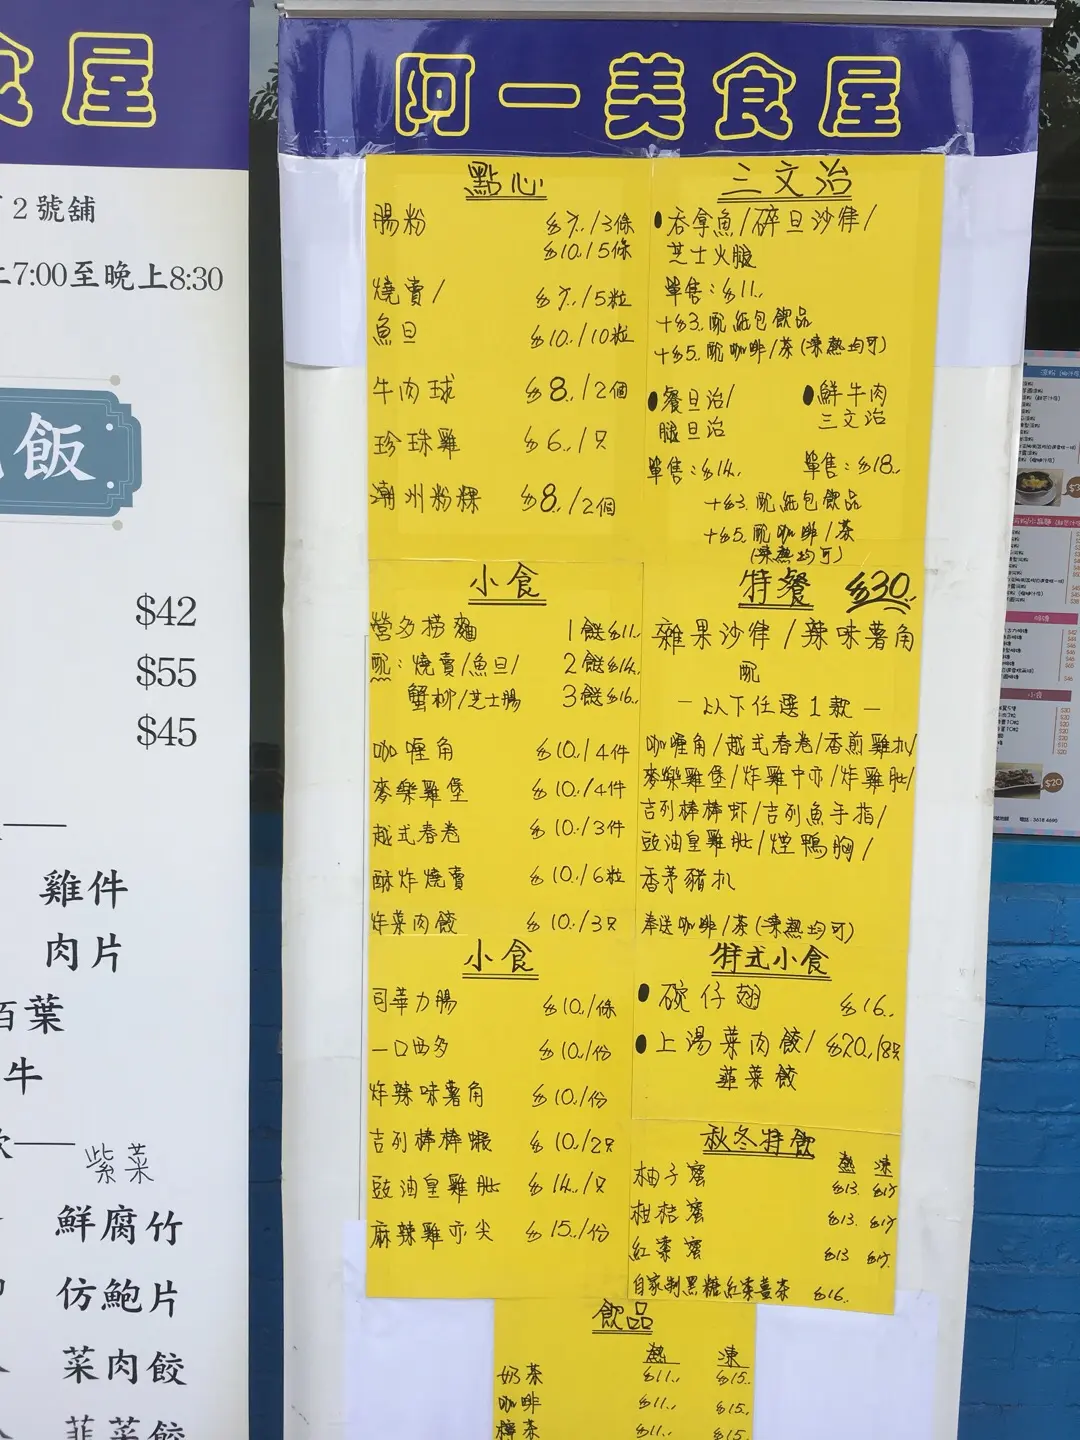 食屋
2號舖
上7:00至晚上8:30
飯
$42
$55
$45
雞件
肉片
百葉
牛
紫菜
鮮腐竹
仿鮑片
菜肉餃
韮菜餃
阿一美食屋
點心
腸粉 $7./3條
$10./5條
燒賣/ $7./5粒
魚旦 $10./10粒
牛肉球 $8./2個
珍珠雞 $6./只
潮州粉粿 $8./2個
三文治
●吞拿魚/碎旦沙律/
芝士火腿
單售:$11.
+$3.配紙包飲品
+$5.配咖啡/茶(凍熱均可)
●餐旦治/
腿旦治
單售:$14.
●鮮牛肉
三文治
單售:$18.
+$3.配紙包飲品
+$5.配咖啡/茶
(凍熱均可)
小食
營多撈麵 1餸$11.
配:燒賣/魚旦/ 2餸$14.
蟹柳/芝士腸 3餸$16.
咖喱角 $10./4件
麥樂雞堡 $10./4件
越式春卷 $10./3件
酥炸燒賣 $10./6粒
炸菜肉餃 $10./3只
特餐 $30.
雜果沙律/辣味薯角
配
-以下任選1款-
咖喱角/越式春卷/香煎雞扒/
麥樂雞堡/炸雞中亦/炸雞肶/
吉列棒棒虾/吉列魚手指/
豉油皇雞肶/煙鴨胸/
香茅豬扒
奉送咖啡/茶(凍熱均可)
小食
司華力腸 $10./條
一口西多 $10./份
炸辣味薯角 $10./份
吉列棒棒蝦 $10./2只
豉油皇雞肶 $14./只
麻辣雞亦尖 $15./份
特式小食
●碗仔翅 $16.
●上湯菜肉餃/ $20./8只
韮菜餃
秋冬特飲
熱 凍
柚子蜜 $13. $17.
柑桔蜜 $13. $17.
紅棗蜜 $13 $17.
自家制黑糖紅棗薑茶 $16.
飲品
熱 凍
奶茶 $11. $15.
咖啡 $11. $15.
檸茶 $11. $15.
$20